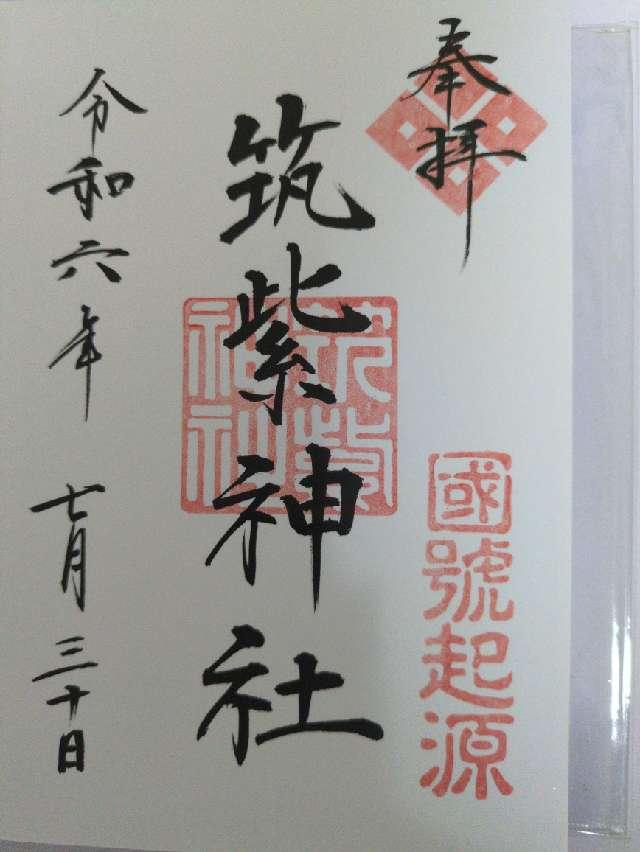 奉拝
國號起源
筑紫神社
筑紫神社
令和六年 七月三十日